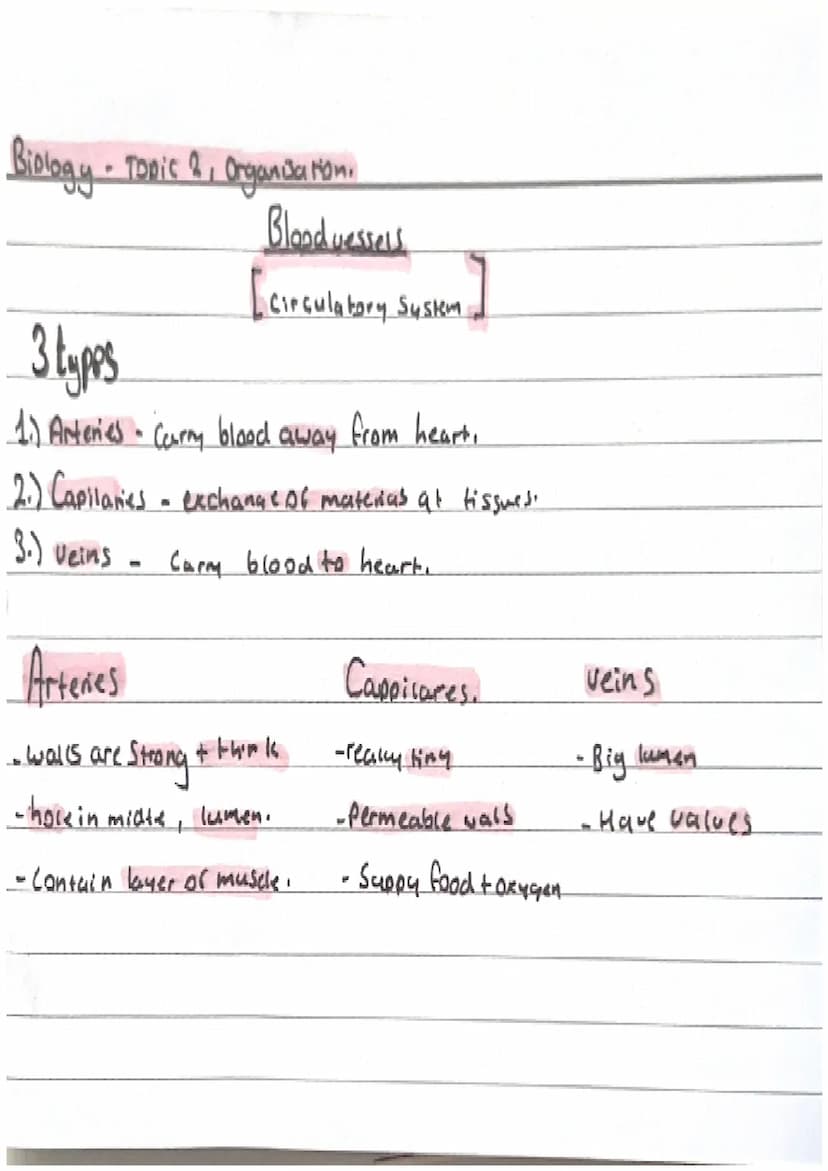 Biology - Topic 2, Organisation.
Blood vessels
[Circulatory System]
3 types
1.) Arteries - Carry blood away from heart.
2.) Capilaries - exchange of materials at tissues.
3.) Veins - Carry blood to heart.
Arteries Cappilares. Veins
- walls are Strong + thick -really tiny - Big lumen
- hole in middle, lumen. -Permeable walls - Have valves
- Contain layer of muscle. - Suppy food + oxygen